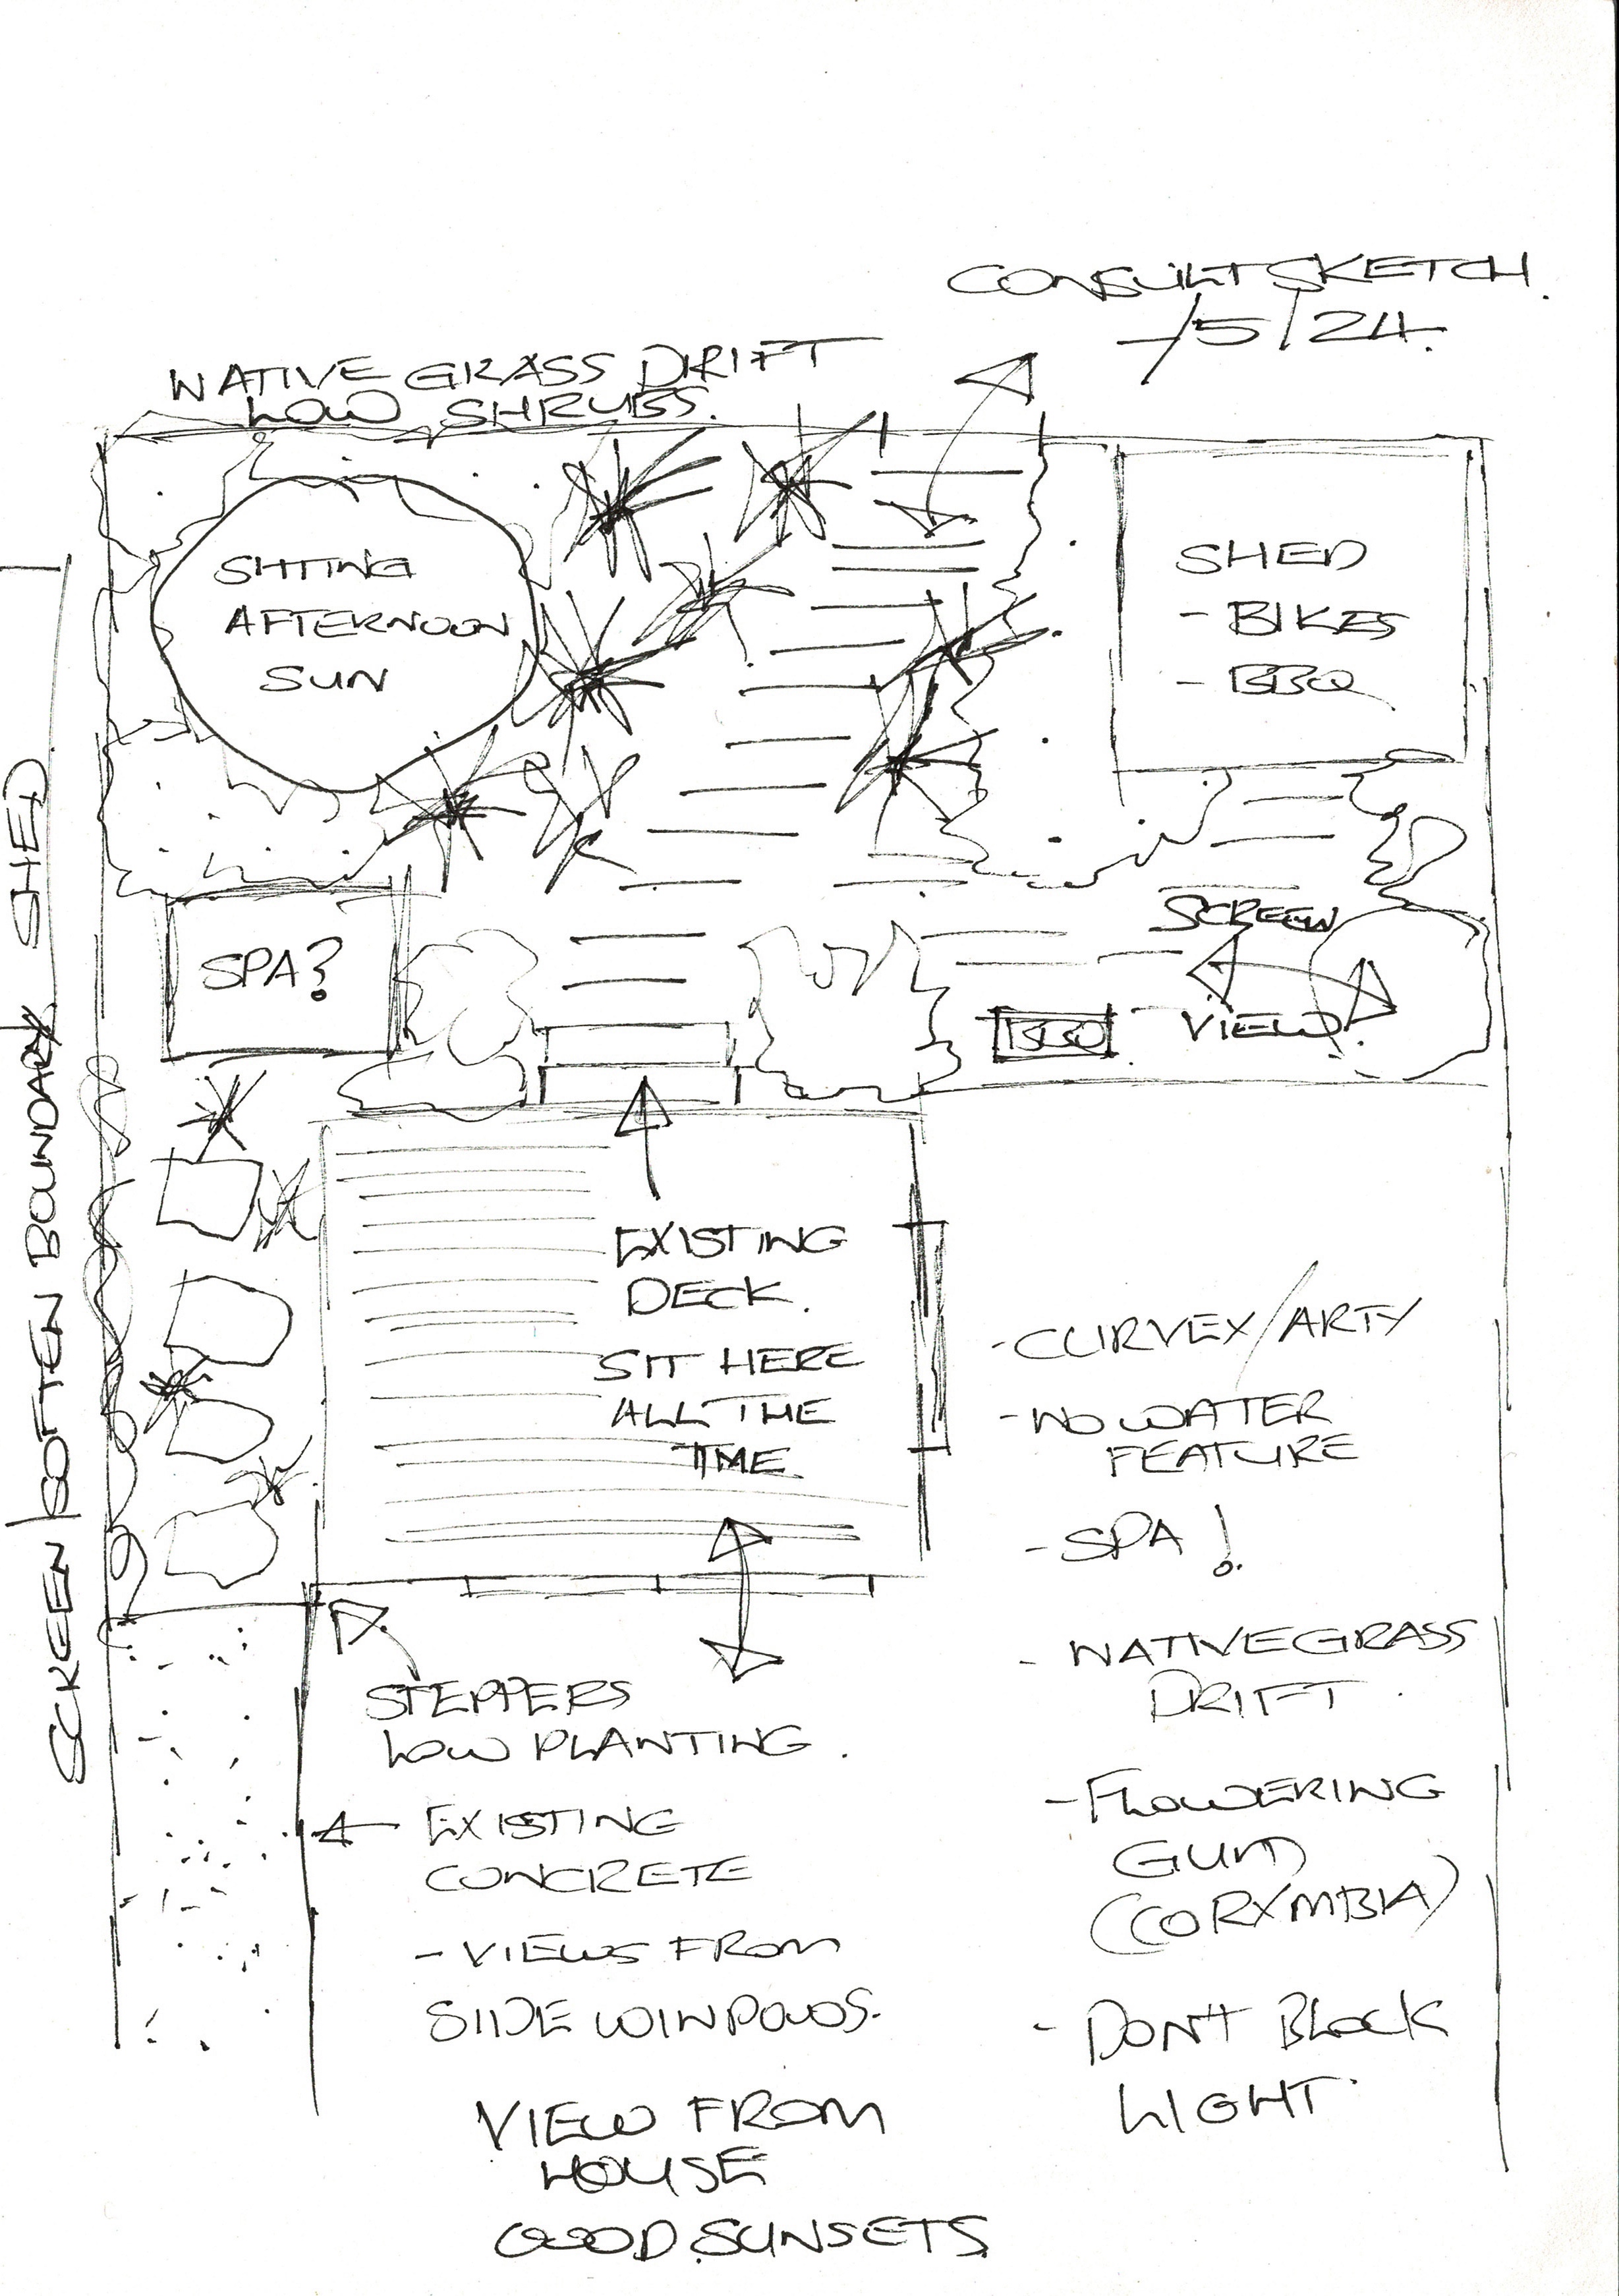 CONSULT SKETCH.
-/5/24.
NATIVE GRASS DRIFT
LOW SHRUBS.
SITTING
AFTERNOON
SUN
SHED
- BIKES
- BBQ
SPA?
SCREEN
VIEW
BBQ
SHED
SCREEN/SOFTEN BOUNDARY
EXISTING
DECK.
SIT HERE
ALL THE
TIME.
- CURVEY/ARTY
- NO WATER
FEATURE
- SPA!
- NATIVE GRASS
DRIFT.
- FLOWERING
GUM
(CORYMBIA)
- DON'T BLOCK
LIGHT.
STEPPERS
LOW PLANTING.
EXISTING
CONCRETE
- VIEWS FROM
SIDE WINDOWS.
VIEW FROM
HOUSE
GOOD SUNSETS